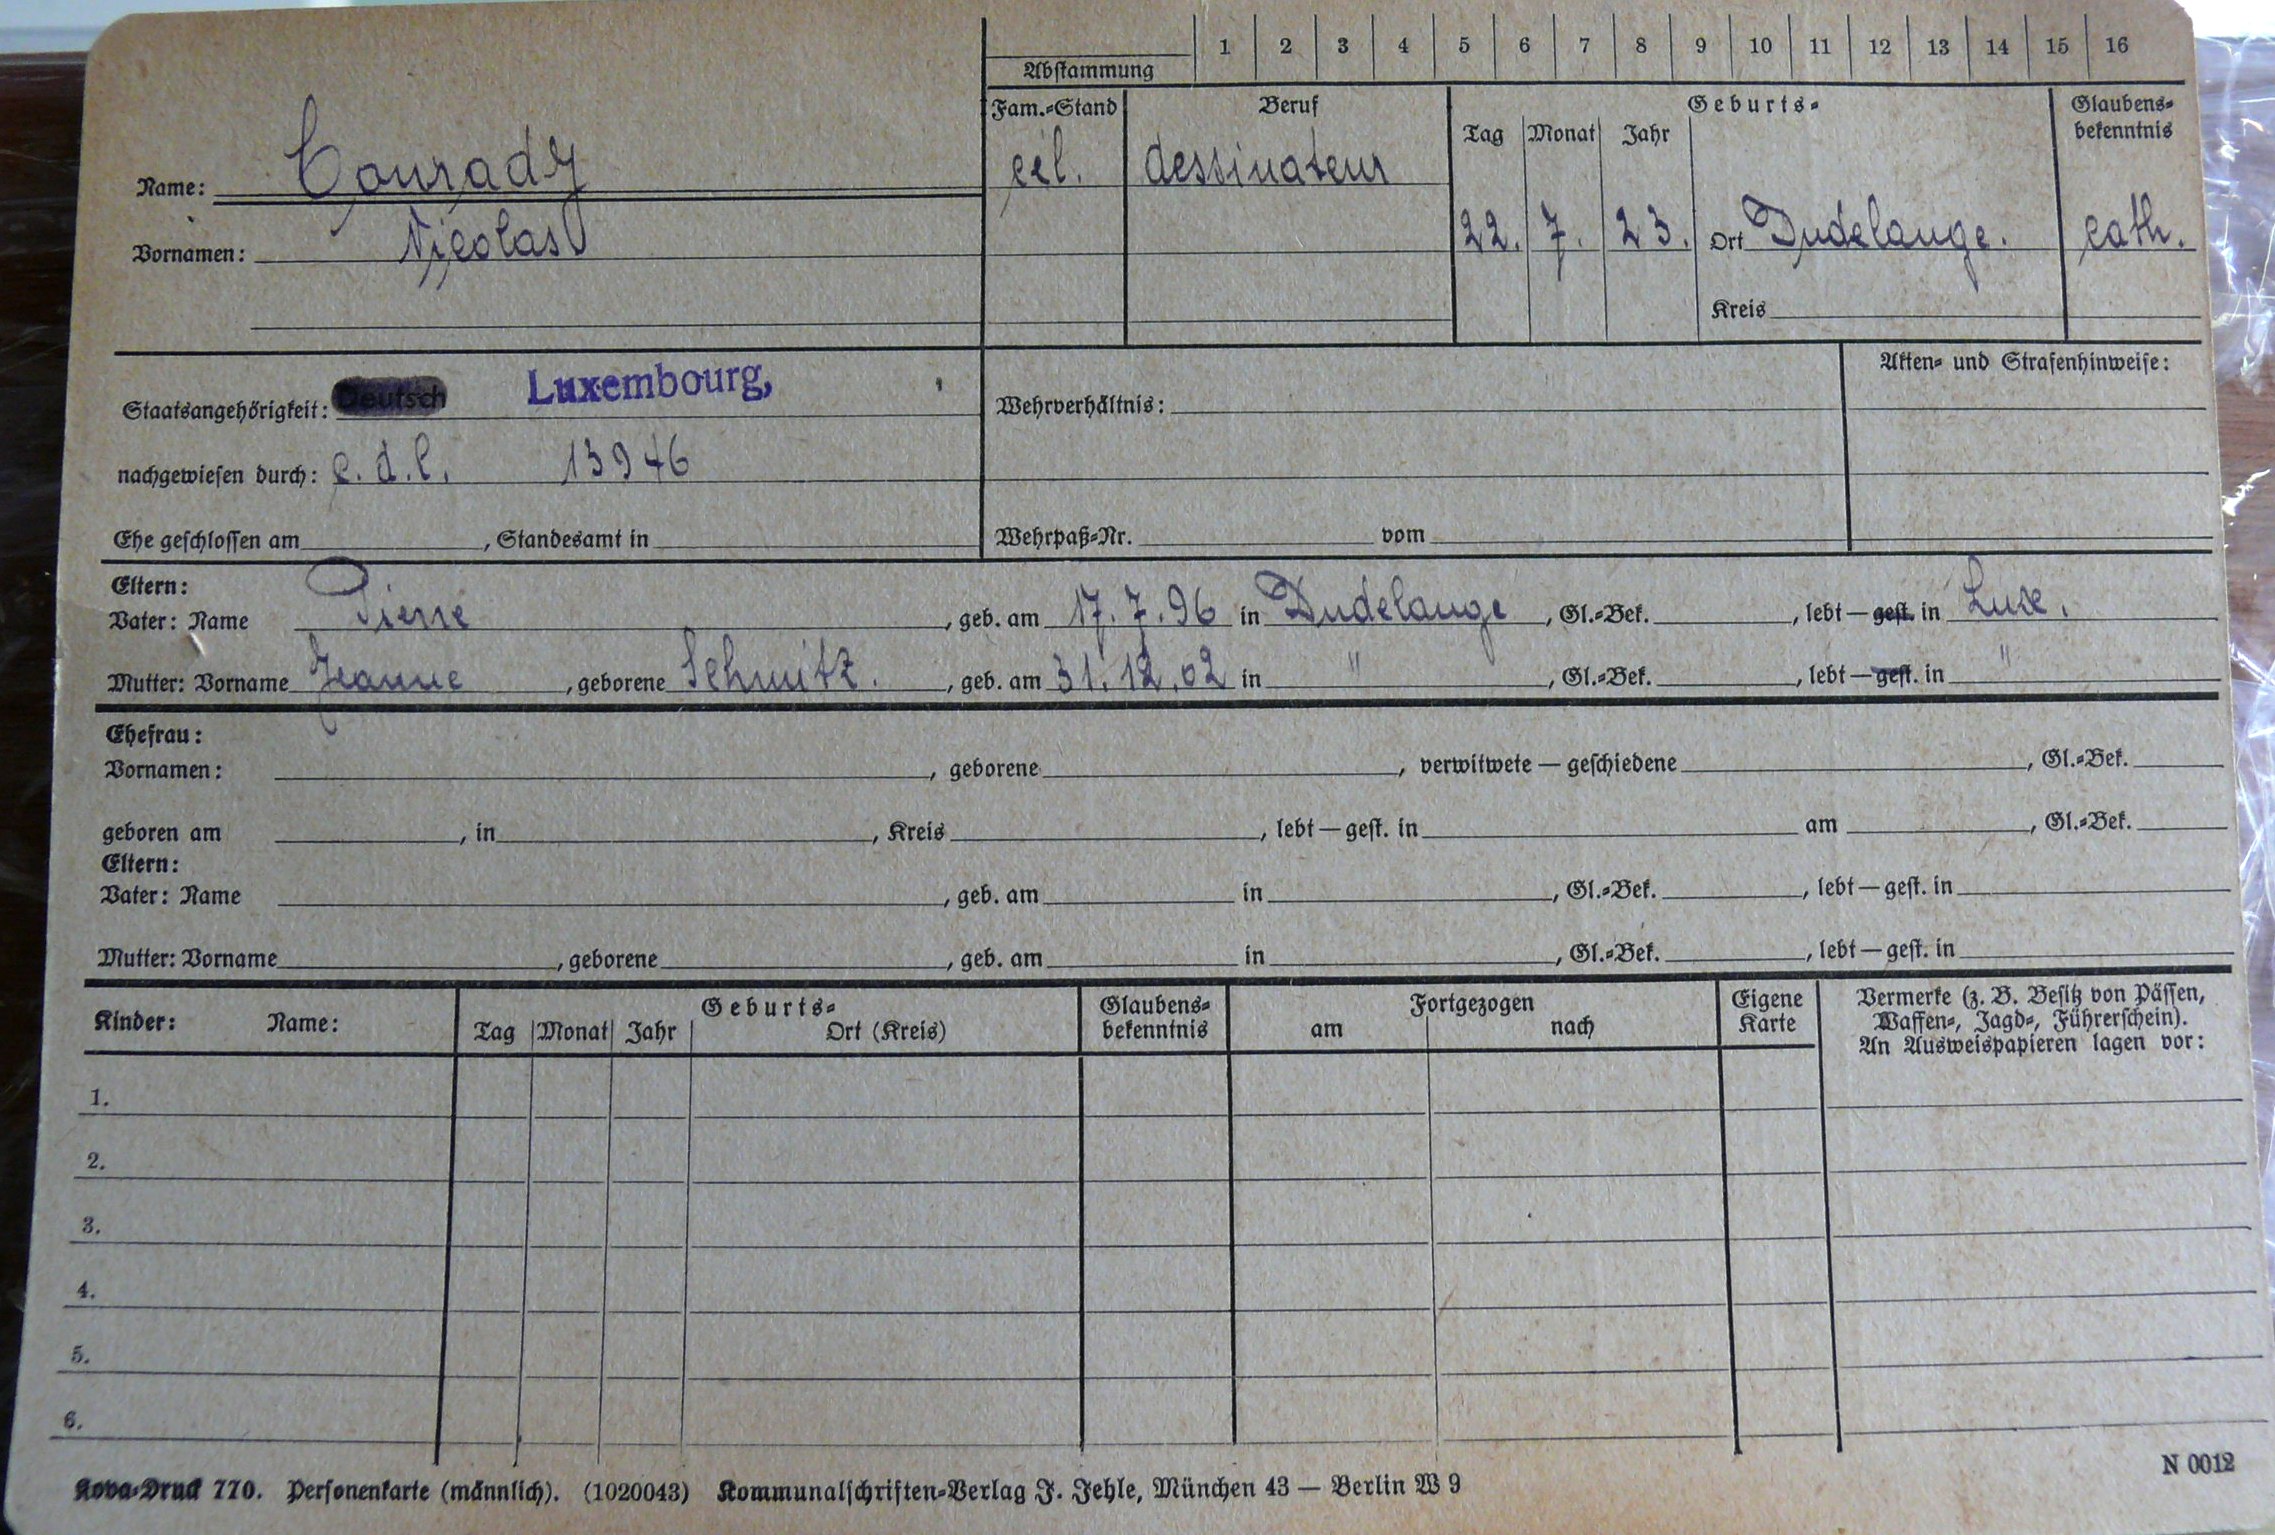 1 2 3 4 5 6 7 8 9 10 11 12 13 14 15 16
Abstammung
Fam.-Stand Beruf Geburts- Glaubens-
Tag Monat Jahr bekenntnis
Name: Conrady cél. dessinateur
Vornamen: Nicolas 22. 7. 23. Ort Dudelange. cath.
Kreis
Akten- und Strafenhinweise:
Staatsangehörigkeit: Deutsch Luxembourg, Wehrverhältnis:
nachgewiesen durch: c.d.l. 13946
Ehe geschlossen am , Standesamt in Wehrpaß-Nr. vom
Eltern:
Vater: Name Pierre , geb. am 17.7.96 in Dudelange , Gl.-Bek. , lebt — gest. in Luxe.
Mutter: Vorname Jeanne , geborene Schmitz. , geb. am 31.12.02 in " , Gl.-Bek. , lebt — gest. in "
Ehefrau:
Vornamen: , geborene , verwitwete — geschiedene , Gl.-Bek.
geboren am , in , Kreis , lebt — gest. in am , Gl.-Bek.
Eltern:
Vater: Name , geb. am in , Gl.-Bek. , lebt — gest. in
Mutter: Vorname , geborene , geb. am in , Gl.-Bek. , lebt — gest. in
Kinder: Name: Geburts- Glaubens- Fortgezogen Eigene Vermerke (z. B. Besitz von Pässen,
Tag Monat Jahr Ort (Kreis) bekenntnis am nach Karte Waffen-, Jagd-, Führerschein).
An Ausweispapieren lagen vor:
1.
2.
3.
4.
5.
6.
N 0012
Kova-Druck 770. Personenkarte (männlich). (1020043) Kommunalschriften-Verlag J. Jehle, München 43 — Berlin W 9